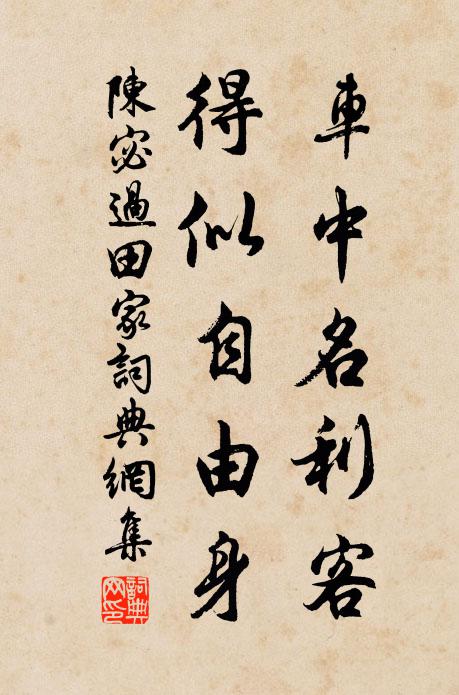 車中名利客
得似自由身
陳宓過田家詞典網集
詞典网印